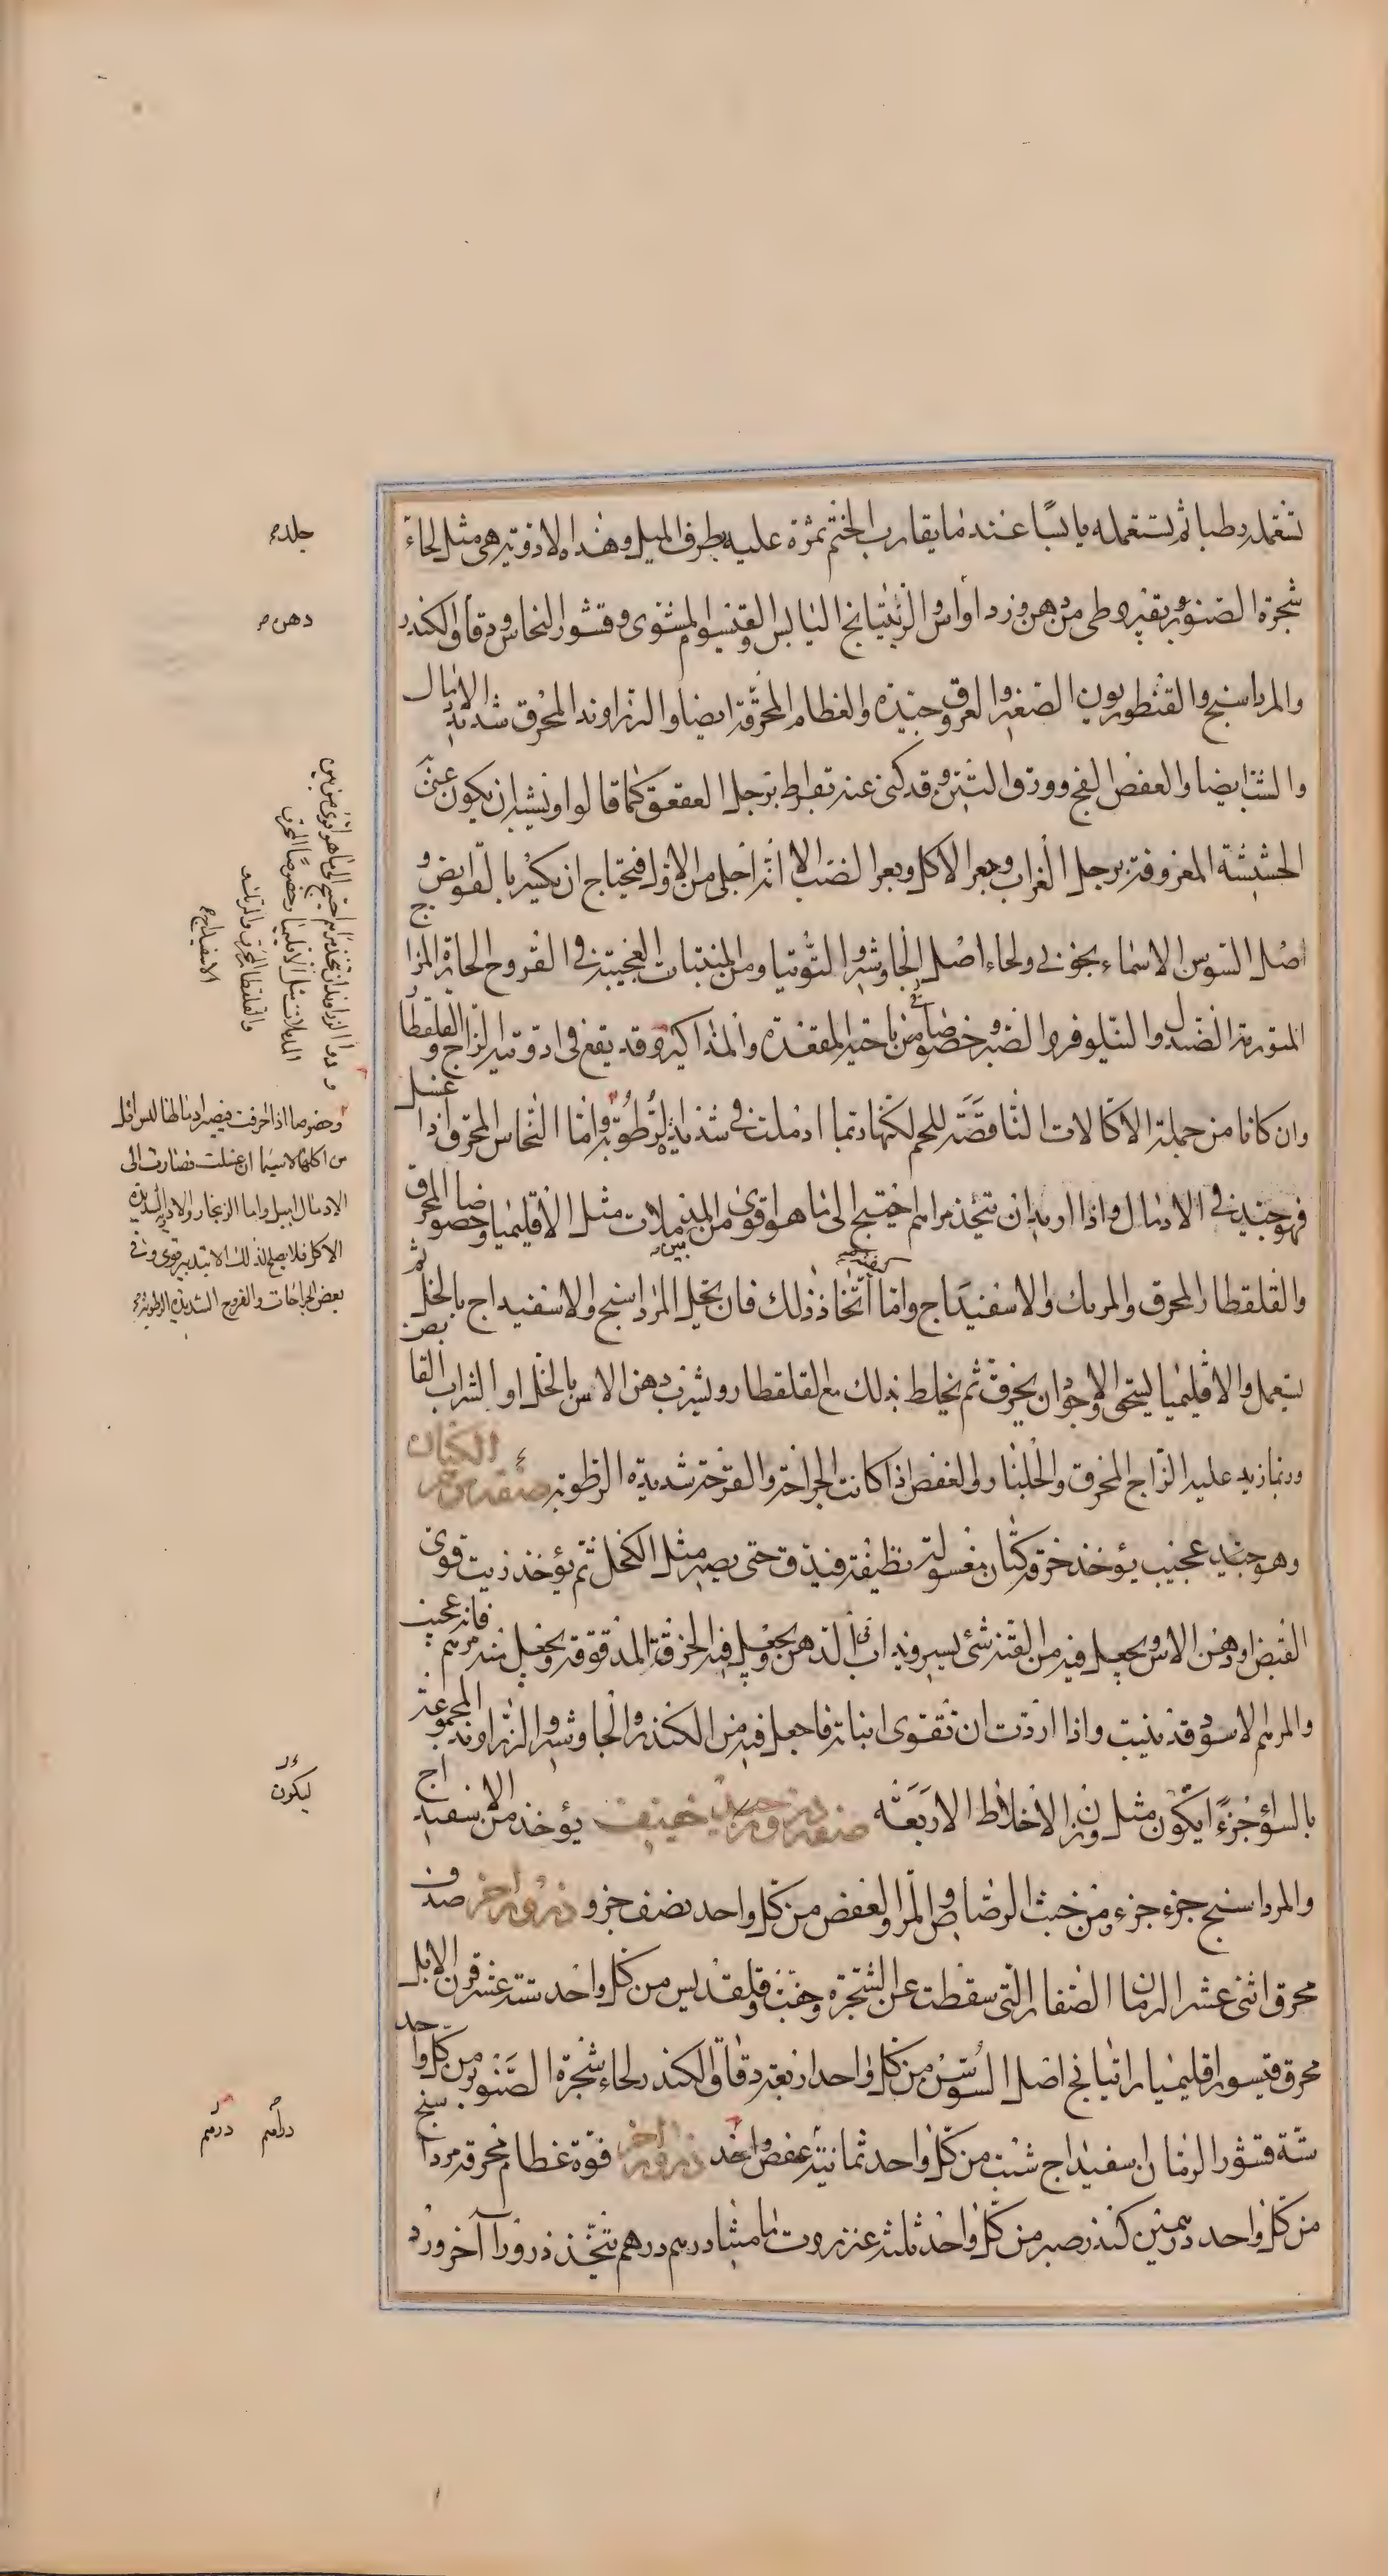 تستعمله رطبا ثم تستعمله يابسًا عند ما يقارب الختم تمرّة عليه بطرف الميل وهذه الادوية هى مثل لحاء
شجرة الصنوبر بقيروطى من دهن ورد او اس والريتيانج اليابس والقنيسوا المشوى وقشور النحاس ودقاق الكندر
والمرداسنج والقنطوريون الصغير والعروق جيّدة والعظام المحرّقة ايضا والزراوند المحرق شديد الادمال
والشب ايضا والعفص الفج وورق التين وقد كنى عنه بقراط برجل العقعق كما قالوا ويشبه ان يكون عنى به
الحشيشة المعروفة برجل الغراب وبعر الاكل وبعر الضب الا انه اجلى من الاول فيحتاج ان يكسر بالقوابض و
اصل السوس الاسمانجونى ولحاء اصل الجاوشير والتوتيا ومن المنبتات العجيبة فى القروح الحارة المزاج
المتورمة الصندل والنيلوفر والصبر خصوصا فى ناحية المقعدة والمذاكير وقد يقع فى ادوتيه الزاج والقلقطار
وان كانا من جملة الاكالات الناقصة للحم لكنها ربما ادملت فى شديدة الرطوبة واما النحاس المحرق اذا غسل
فهو جيد فى الادمال واذا اريد ان يتخذ مراهم احتيج الى ما هو اقوى من المدملات مثل الاقليميا وخصوصا المحرق
والقلقطار المحرق والمرتك والاسفيداج واما اتخاذ ذلك فان يخل المرداسنج والاسفيداج بالخل ثم
يستعمل والاقليميا يسحق والاجود ان يحرق ثم يخلط بذلك مع القلقطار ويشرب دهن الاس بالخل او الشراب القابض
وربما زيد عليه الزاج المحرق والجلنار والعفص اذا كانت الجراحة والقرحة شديدة الرطوبة صفة مرهم الكتان
وهو جيد عجيب يؤخذ خرقة كتان مغسولة نظيفة فيدق حتى يصير مثل الكحل ثم يؤخذ زيت قوى
القبض او دهن الاس ويجعل فيه من القنة شئ يسير ويذاب فى الدهن ويجعل فيه الخرقة المدقوقة ويجعل منه مرهم فانه عجيب
والمرهم الاسود قد ينبت واذا اردت ان تقوى انباته فاجعل فيه من الكندر والجاوشير والزراوند المجموعة
بالسواء جزءًا يكون مثل وزن الاخلاط الاربعة صفة ذرور جيد خفيف يؤخذ من الاسفيداج
والمرداسنج جزء جزء ومن خبث الرصاص والمر والعفص من كل واحد نصف جزو ذرور اخر صدف
محرق اثنى عشر الرمان الصغار التى سقطت عن الشجرة وجفت وقلقديس من كل واحد ستة عشر قرن الايل
محرق قيسور اقليميا راتيانج اصل السوسن من كل واحد اربعة دقاق الكندر لحاء شجرة الصنوبر من كل واحد
ستة قشور الرمان اسفيداج شب من كل واحد ثمانية عفص واحد ذرور اخر فوّة عظام محرقة مرداسنج
من كل واحد درهمين كندر صبر من كل واحد ثلثة عنزروت ماميثا درهم درهم يتخذ ذرورا آخر ورد
جلد
دهن
والقلقطار المحرق والمرتك و
الاسفيداج
وخصوصا اذا احرقت فيصير ادمالها ليس اقل
من اكلها لاسيما ان غسلت فصارت الى
الادمال اميل واما الزنجار والادوية الشديدة
الاكل فلا يصلح لذلك الا بتدبير قوى وفى
بعض الجراحات والقروح الشديدة الرطوبة
ليكون
دراهم درهم